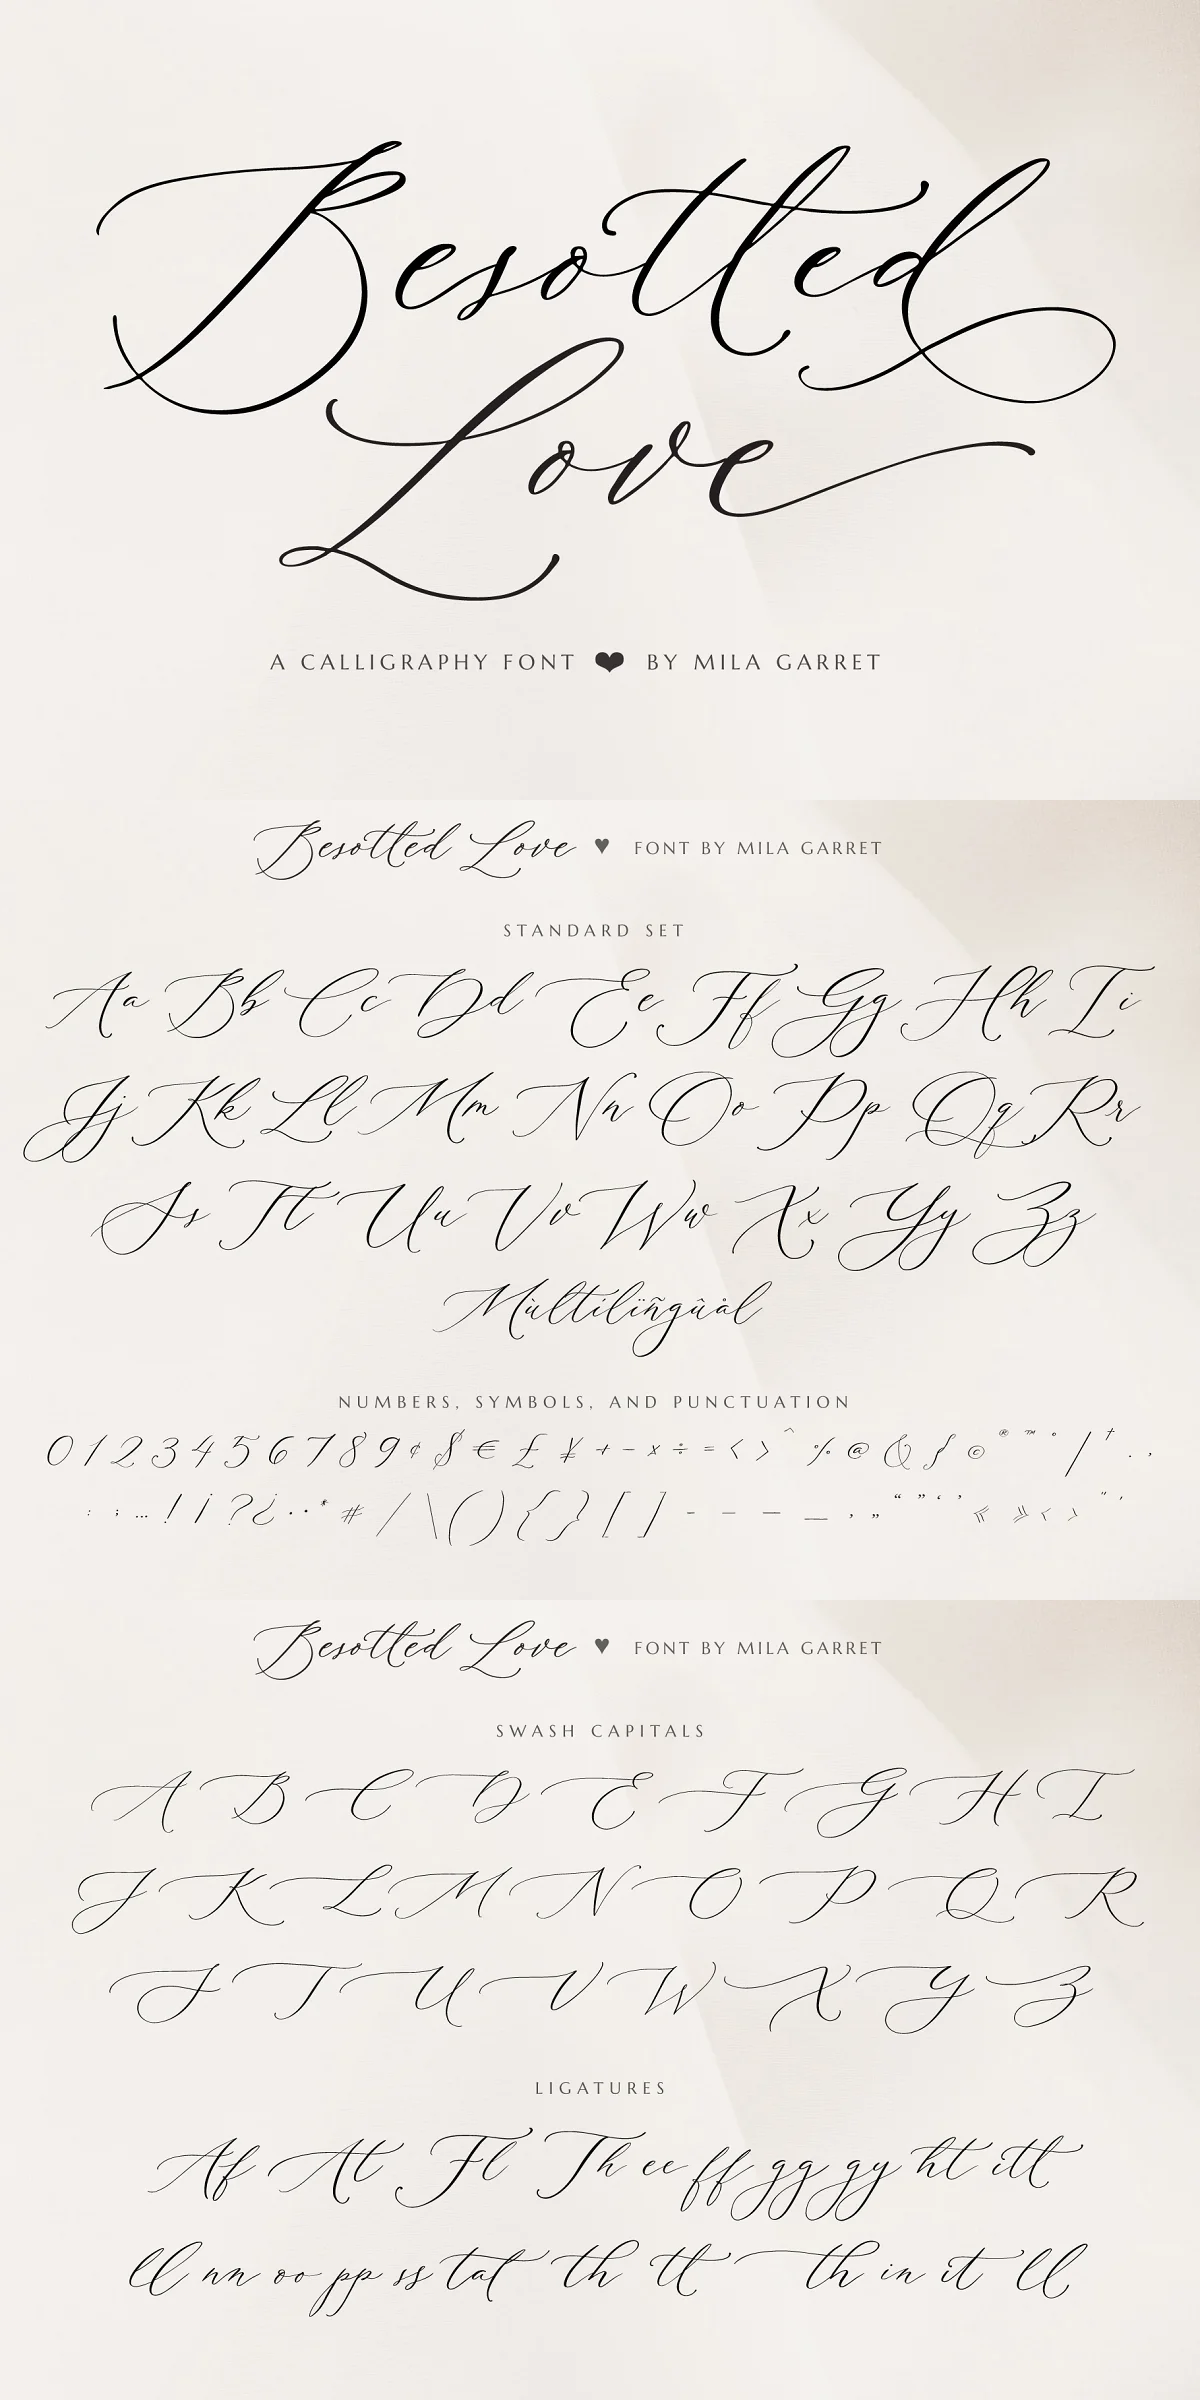 Besotted
Love
A CALLIGRAPHY FONT ❤ BY MILA GARRET
Besotted Love ♥ FONT BY MILA GARRET
STANDARD SET
Aa Bb Cc Dd Ee Ff Gg Hh Ii
Jj Kk Ll Mm Nn Oo Pp Qq Rr
Ss Tt Uu Vv Ww Xx Yy Zz
Mùltilïñgûål
NUMBERS, SYMBOLS, AND PUNCTUATION
0 1 2 3 4 5 6 7 8 9 ¢ $ € £ ¥ + − × ÷ = < > ^ % @ & ƒ © ® ™ ° / † . ,
: ; … ! ¡ ? ¿ · · * # / \ ( ) { } [ ] - – — _ ‚ „ “ ” ‘ ’ « » ‹ › " '
Besotted Love ♥ FONT BY MILA GARRET
SWASH CAPITALS
A B C D E F G H I
J K L M N O P Q R
S T U V W X Y Z
LIGATURES
Af At Fl Th ee ff gg gy ht itt
ll nn oo pp ss tat th tt th in it ll